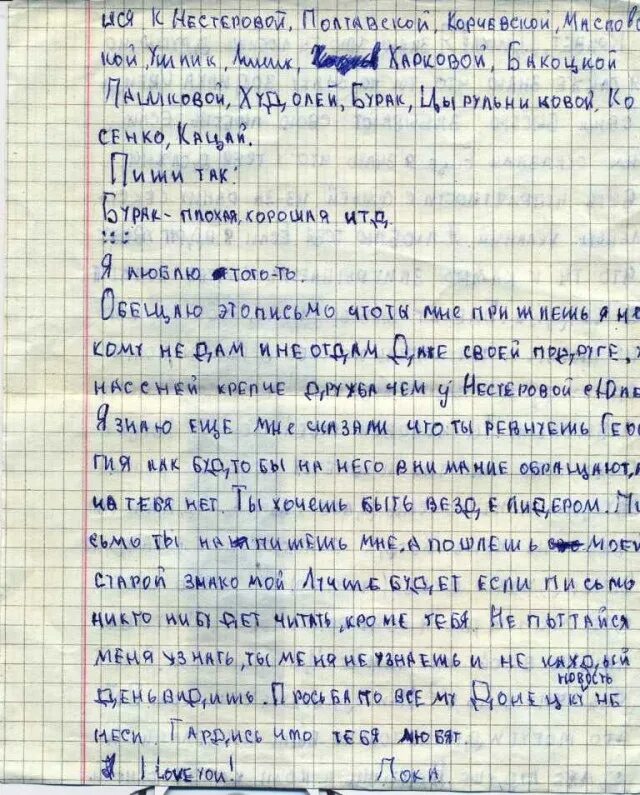 ися к Нестеровой, Полтавской, Корчевской, Маслов
кой Ушпик, Харковой, Бакоцкой
Пашковой, Худолей, Бурак, Цырульниковой, Ко
сенко, Кацай.
Пиши так:
Бурак - плохая, хорошая и т д
:::
Я люблю того-то.
Обещаю это письмо что ты мне пришлешь я не
кому не дам и не отдам Даже своей подруге, у
нас с ней крепче дружба чем у Нестеровой с Юле
Я знаю еще мне сказали что ты ревнуешь Геор
гия как будто бы на него внимание обращают, а
на тебя нет. Ты хочешь быть везде лидером. Пи
сьмо ты напишешь мне, а пошлешь моей
старой знакомой Лучше будет если письмо
никто ни будет читать, кроме тебя. Не пытайся
меня узнать, ты меня не узнаешь и не каждый
день видишь. Просьба по всему Донецку новость не
неси. Гардись что тебя любят.
I love you! Пока.